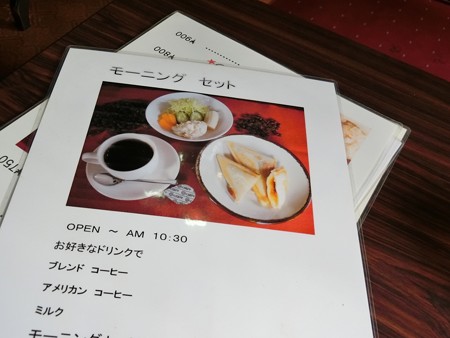 モーニング セット
OPEN ～ AM 10:30
お好きなドリンクで
ブレンド コーヒー
アメリカン コーヒー
ミルク
モーニング
¥900
¥800
¥750